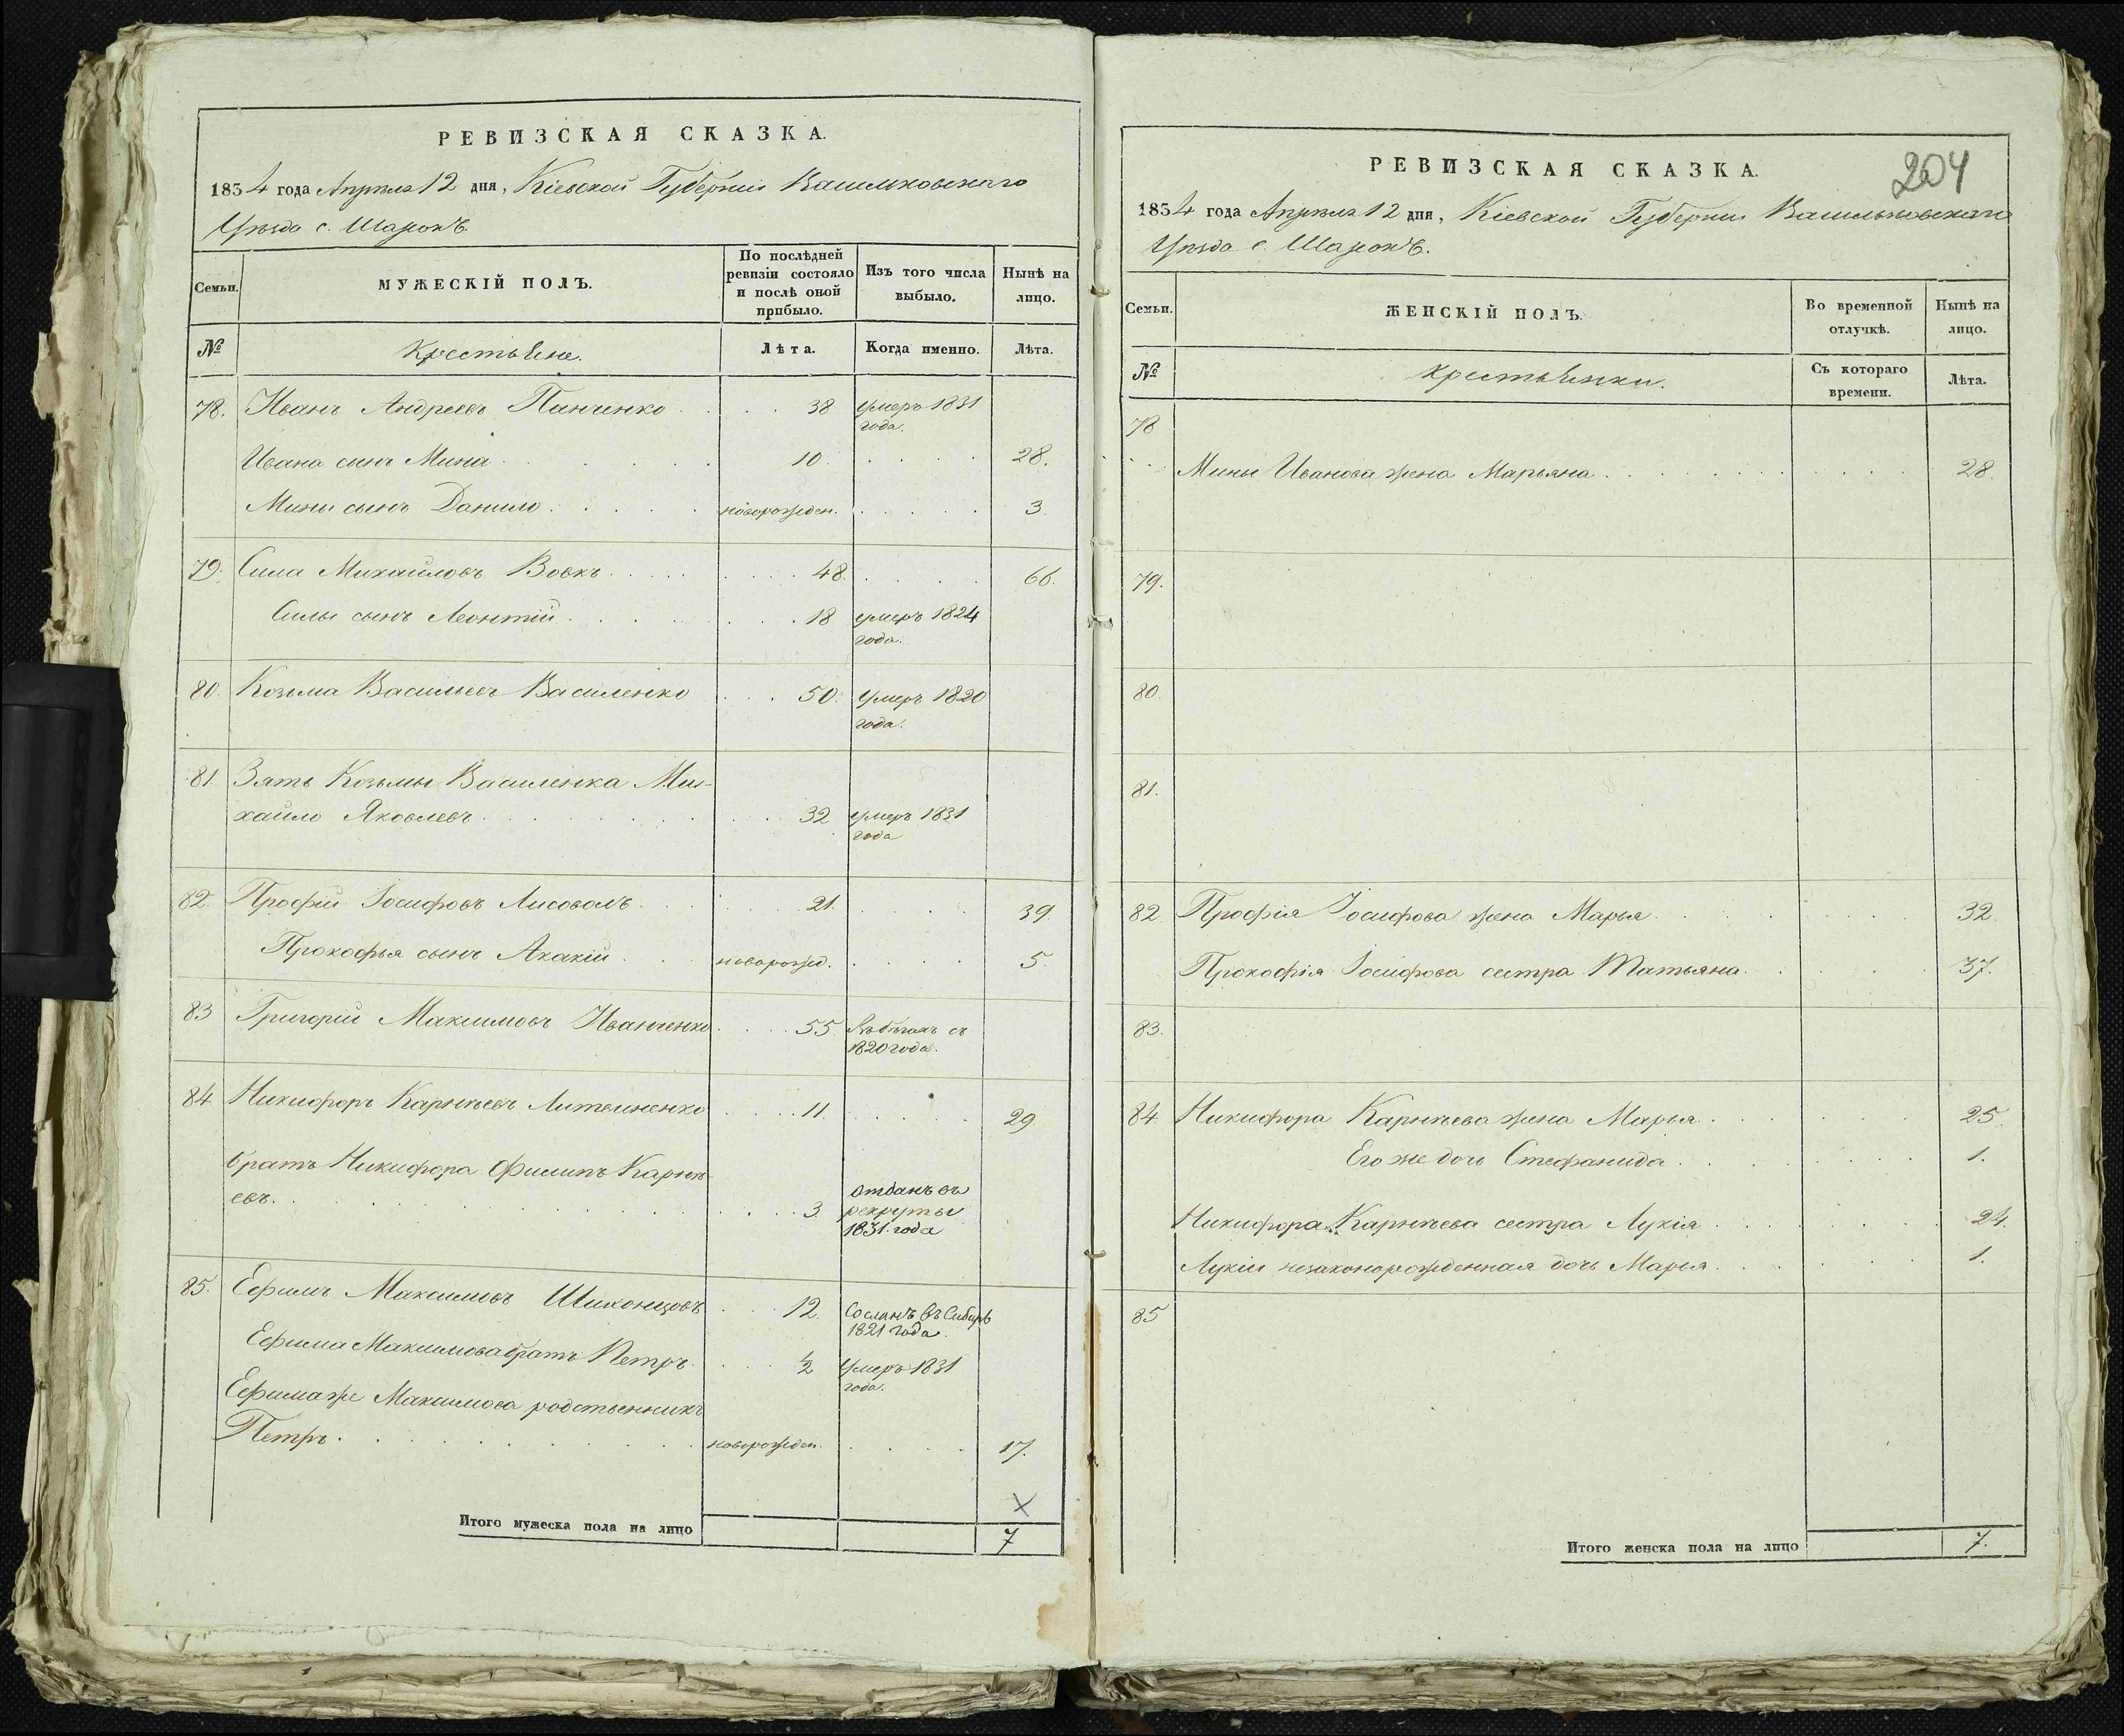 РЕВИЗСКАЯ СКАЗКА.
1834 года Апрѣля 12 дня, Кіевской Губерніи Васильковскаго
Уѣзда с. Шарокъ.
Семьи.
МУЖЕСКІЙ ПОЛЪ.
По послѣдней ревизіи состояло и послѣ оной прибыло.
Изъ того числа выбыло.
Нынѣ на лицо.
№
Крестьяне.
Лѣта.
Когда именно.
Лѣта.
78. Иванъ Андреевъ Панченко 38 умеръ 1831
года.
Ивана сынъ Мина 10 28.
Мины сынъ Данило новорожден. 3.
79. Сила Михайловъ Вовкъ 48 66.
Силы сынъ Леонтій 18 умеръ 1824
года.
80. Козьма Васильевъ Василенко 50. умеръ 1820
года.
81. Зять Козьмы Василенка Ми-
хайло Яковлевъ 32 умеръ 1831
года
82. Профій Іосифовъ Лисоволъ 21. 39.
Прокофья сынъ Акакій новорожд. 5.
83 Григорій Максимовъ Иванченко 55 Въ бѣгахъ съ
1820 года.
84 Никифоръ Карнѣевъ Литвиненко 11. 29.
братъ Никифора Филипъ Карнѣ-
евъ 3. отданъ въ
рекруты
1831. года
85. Ефимъ Максимовъ Шихонцовъ 12. Сосланъ въ Сибирь
1821 года.
Ефима Максимова братъ Петръ ½ умеръ 1831
года.
Ефима же Максимова родственникъ
Петръ новорожден. 17.
Х
Итого мужеска пола на лицо 7
204
РЕВИЗСКАЯ СКАЗКА.
1834 года Апрѣля 12 дня, Кіевской Губерніи Васильковскаго
Уѣзда с. Шарокъ.
Семьи.
ЖЕНСКІЙ ПОЛЪ.
Во временной отлучкѣ.
Нынѣ на лицо.
№
Крестьянки.
Съ котораго времени.
Лѣта.
78
Мины Иванова жена Марьяна 28.
79.
80.
81.
82. Профія Іосифова жена Марья 32.
Прокофія Іосифова сестра Татьяна 37.
83.
84. Никифора Карнѣева жена Марья 25.
Его же дочь Стефанида 1.
Никифора Карнѣева сестра Лукія 24.
Лукіи незаконорожденная дочь Марья 1.
85
Итого женска пола на лицо 7.